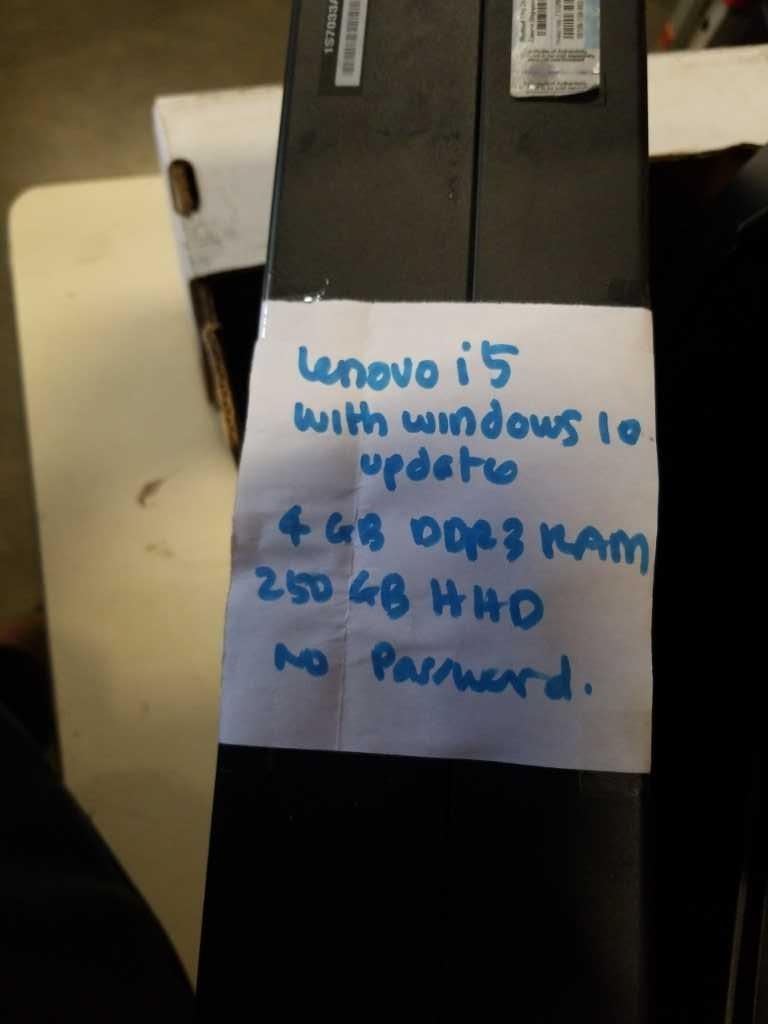 1S7033A
Lenovo i5
with windows 10
update
4 GB DDR3 RAM
250 GB HHD
No Password.